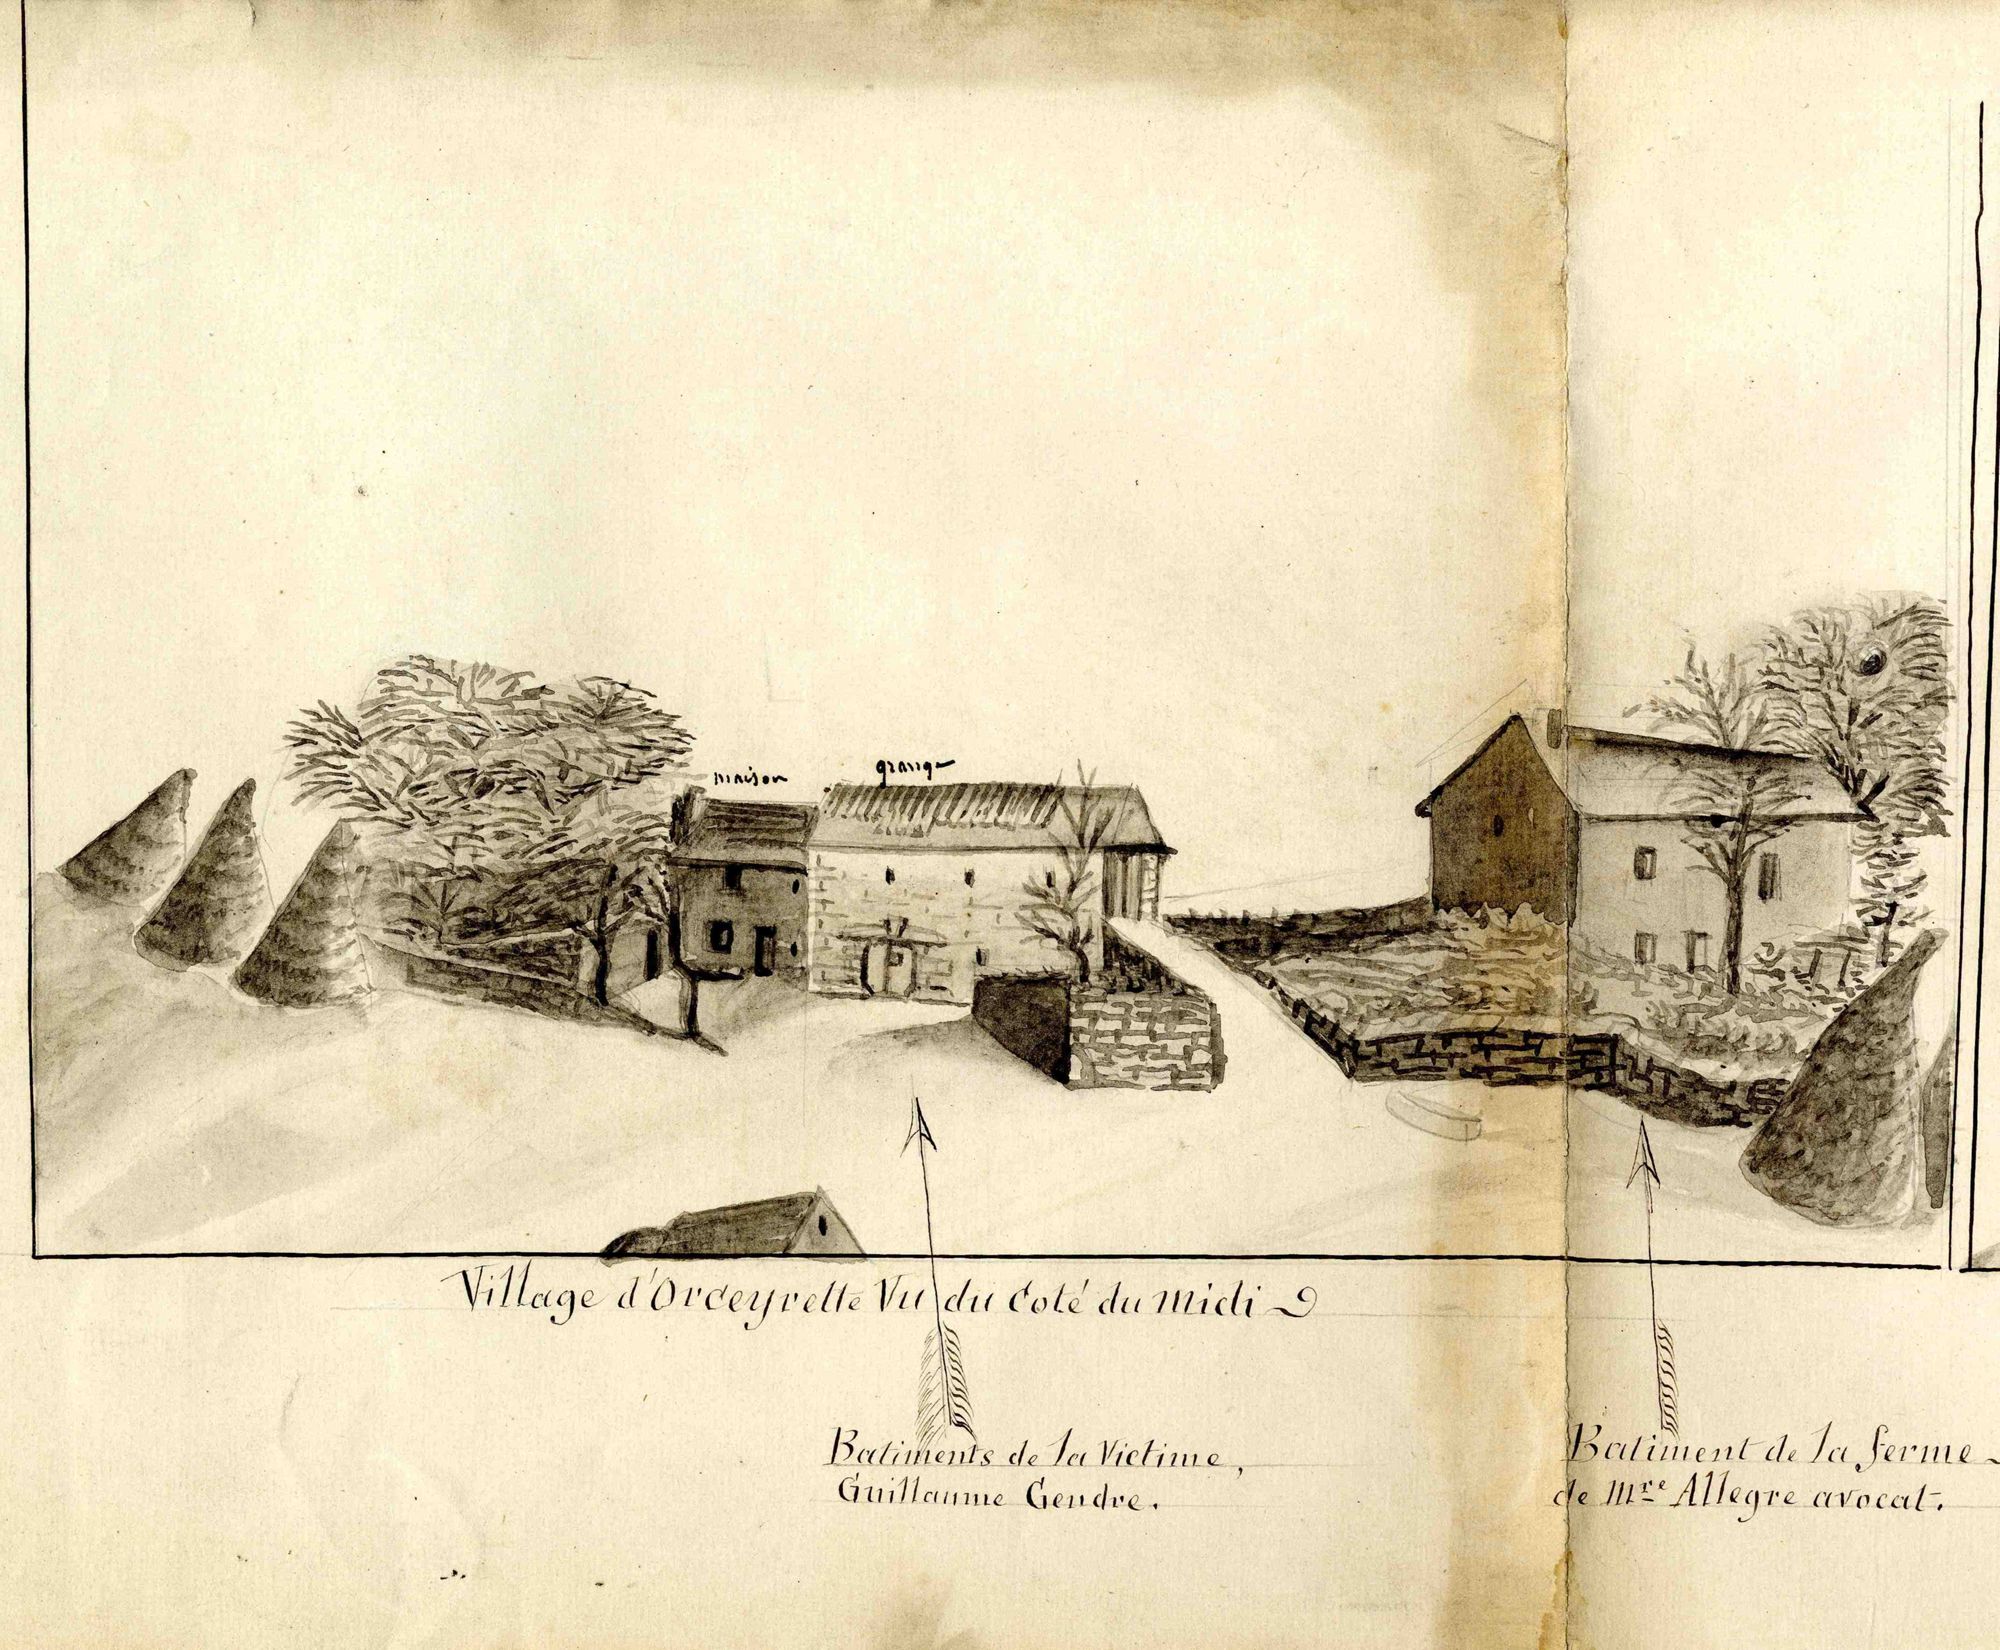 maison
grange
Village d'Orceyrette Vu du Coté du Midi
Batiments de la Victime,
Guillaume Gendre.
Batiment de la ferme
de Mre Allegre avocat.